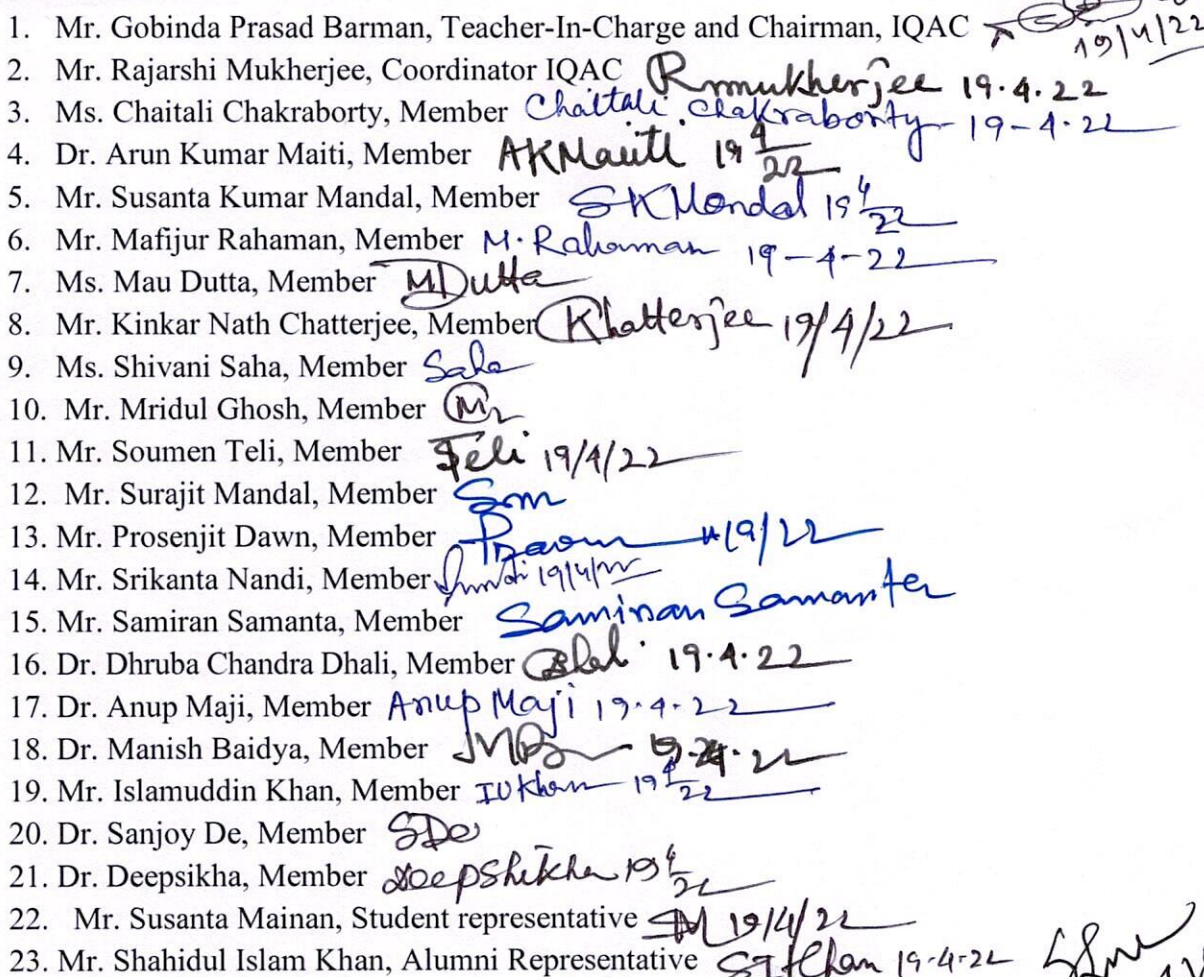 1. Mr. Gobinda Prasad Barman, Teacher-In-Charge and Chairman, IQAC 19/4/22
2. Mr. Rajarshi Mukherjee, Coordinator IQAC Rmukherjee 19.4.22
3. Ms. Chaitali Chakraborty, Member Chaitali Chakraborty 19-4-22
4. Dr. Arun Kumar Maiti, Member AKMaiti 19 4/22
5. Mr. Susanta Kumar Mandal, Member SKMondal 19 4/22
6. Mr. Mafijur Rahaman, Member M. Rahaman 19-4-22
7. Ms. Mau Dutta, Member MDutta
8. Mr. Kinkar Nath Chatterjee, Member KChatterjee 19/4/22
9. Ms. Shivani Saha, Member Saha
10. Mr. Mridul Ghosh, Member
11. Mr. Soumen Teli, Member Teli 19/4/22
12. Mr. Surajit Mandal, Member Sm
13. Mr. Prosenjit Dawn, Member PDawn
14. Mr. Srikanta Nandi, Member 19/4/22
15. Mr. Samiran Samanta, Member Samiran Samanta
16. Dr. Dhruba Chandra Dhali, Member 19.4.22
17. Dr. Anup Maji, Member Anup Maji 19.4.22
18. Dr. Manish Baidya, Member
19. Mr. Islamuddin Khan, Member IUKhan 19 4/22
20. Dr. Sanjoy De, Member SDe
21. Dr. Deepsikha, Member Deepshikha 19 4/22
22. Mr. Susanta Mainan, Student representative SM 19/4/22
23. Mr. Shahidul Islam Khan, Alumni Representative SIKhan 19-4-22